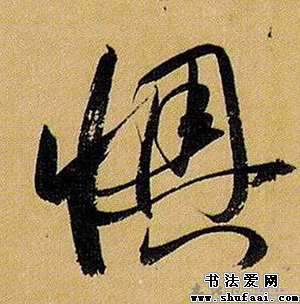 惧
书法爱网
www.shufaai.com